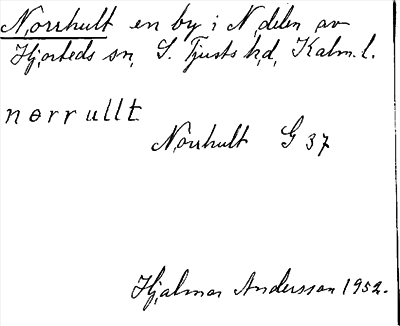 Norrhult en by i N. delen av
Hjorteds sn, S. Tjusts hd, Kalm. l.
nørrullt
Norrhult G 37
Hjalmar Andersson 1952.